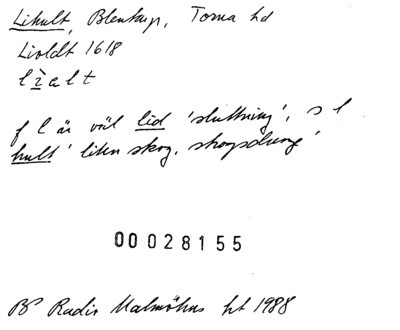 Lihult, Blentarp, Torna hd
Lioldt 1618
lìalt
f l är väl lid 'sluttning', s l
hult 'liten skog, skogsdunge'
00028155
BP Radio Malmöhus ht 1988